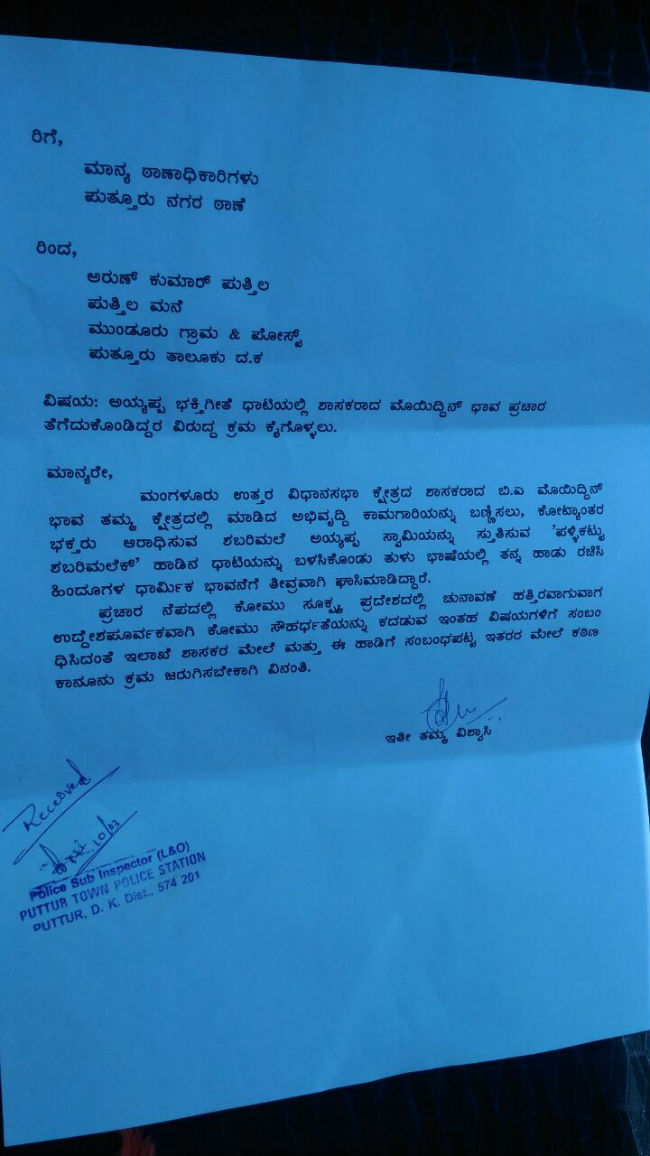 ರಿಗೆ,
ಮಾನ್ಯ ಠಾಣಾಧಿಕಾರಿಗಳು
ಪುತ್ತೂರು ನಗರ ಠಾಣೆ
ರಿಂದ,
ಅರುಣ್ ಕುಮಾರ್ ಪುತ್ತಿಲ
ಪುತ್ತಿಲ ಮನೆ
ಮುಂಡೂರು ಗ್ರಾಮ & ಪೋಸ್ಟ್
ಪುತ್ತೂರು ತಾಲೂಕು ದ.ಕ
ವಿಷಯ: ಅಯ್ಯಪ್ಪ ಭಕ್ತಿಗೀತೆ ಧಾಟಿಯಲ್ಲಿ ಶಾಸಕರಾದ ಮೊಯಿದ್ದಿನ್ ಭಾವ ಪ್ರಚಾರ
ತೆಗೆದುಕೊಂಡಿದ್ದರ ವಿರುದ್ದ ಕ್ರಮ ಕೈಗೊಳ್ಳಲು.
ಮಾನ್ಯರೇ,
ಮಂಗಳೂರು ಉತ್ತರ ವಿಧಾನಸಭಾ ಕ್ಷೇತ್ರದ ಶಾಸಕರಾದ ಬಿ.ಎ ಮೊಯಿದ್ದಿನ್
ಭಾವ ತಮ್ಮ ಕ್ಷೇತ್ರದಲ್ಲಿ ಮಾಡಿದ ಅಭಿವೃದ್ದಿ ಕಾಮಗಾರಿಯನ್ನು ಬಣ್ಣಿಸಲು, ಕೋಟ್ಯಾಂತರ
ಭಕ್ತರು ಆರಾಧಿಸುವ ಶಬರಿಮಲೆ ಅಯ್ಯಪ್ಪ ಸ್ವಾಮಿಯನ್ನು ಸ್ತುತಿಸುವ 'ಪಳ್ಳಿಕಟ್ಟು
ಶಬರಿಮಲೆಕ್' ಹಾಡಿನ ಧಾಟಿಯನ್ನು ಬಳಸಿಕೊಂಡು ತುಳು ಭಾಷೆಯಲ್ಲಿ ತನ್ನ ಹಾಡು ರಚಿಸಿ
ಹಿಂದೂಗಳ ಧಾರ್ಮಿಕ ಭಾವನೆಗೆ ತೀವ್ರವಾಗಿ ಘಾಸಿಮಾಡಿದ್ದಾರೆ.
ಪ್ರಚಾರ ನೆಪದಲ್ಲಿ ಕೋಮು ಸೂಕ್ಷ್ಮ ಪ್ರದೇಶದಲ್ಲಿ ಚುನಾವಣೆ ಹತ್ತಿರವಾಗುವಾಗ
ಉದ್ದೇಶಪೂರ್ವಕವಾಗಿ ಕೋಮು ಸೌಹರ್ಧತೆಯನ್ನು ಕದಡುವ ಇಂತಹ ವಿಷಯಗಳಿಗೆ ಸಂಬಂ
ಧಿಸಿದಂತೆ ಇಲಾಖೆ ಶಾಸಕರ ಮೇಲೆ ಮತ್ತು ಈ ಹಾಡಿಗೆ ಸಂಬಂಧಪಟ್ಟ ಇತರರ ಮೇಲೆ ಕಠಿಣ
ಕಾನೂನು ಕ್ರಮ ಜರುಗಿಸಬೇಕಾಗಿ ವಿನಂತಿ.
ಇತೀ ತಮ್ಮ ವಿಶ್ವಾಸಿ
Received
10/03
Police Sub Inspector (L&O)
PUTTUR TOWN POLICE STATION
PUTTUR, D. K. Dist., 574 201